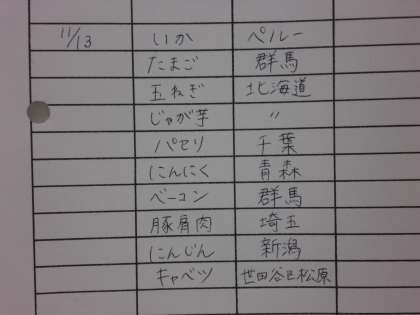 11/13 いか ペルー
たまご 群馬
玉ねぎ 北海道
じゃが芋 〃
パセリ 千葉
にんにく 青森
ベーコン 群馬
豚肩肉 埼玉
にんじん 新潟
キャベツ 世田谷区松原